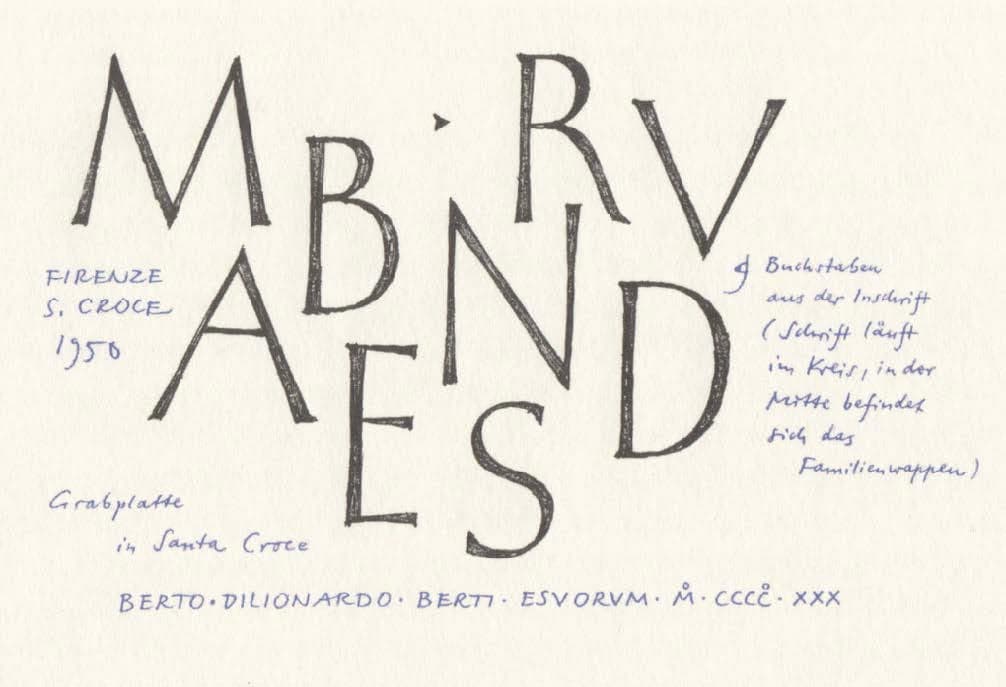 M B R V
A N D
E S
FIRENZE
S. CROCE
1950
9 Buchstaben
aus der Inschrift
(Schrift läuft
im Kreis, in der
Mitte befindet
sich das
Familienwappen)
Grabplatte
in Santa Croce
BERTO·DILIONARDO· BERTI· ESVORVM· M̊· CCCC̊· XXX